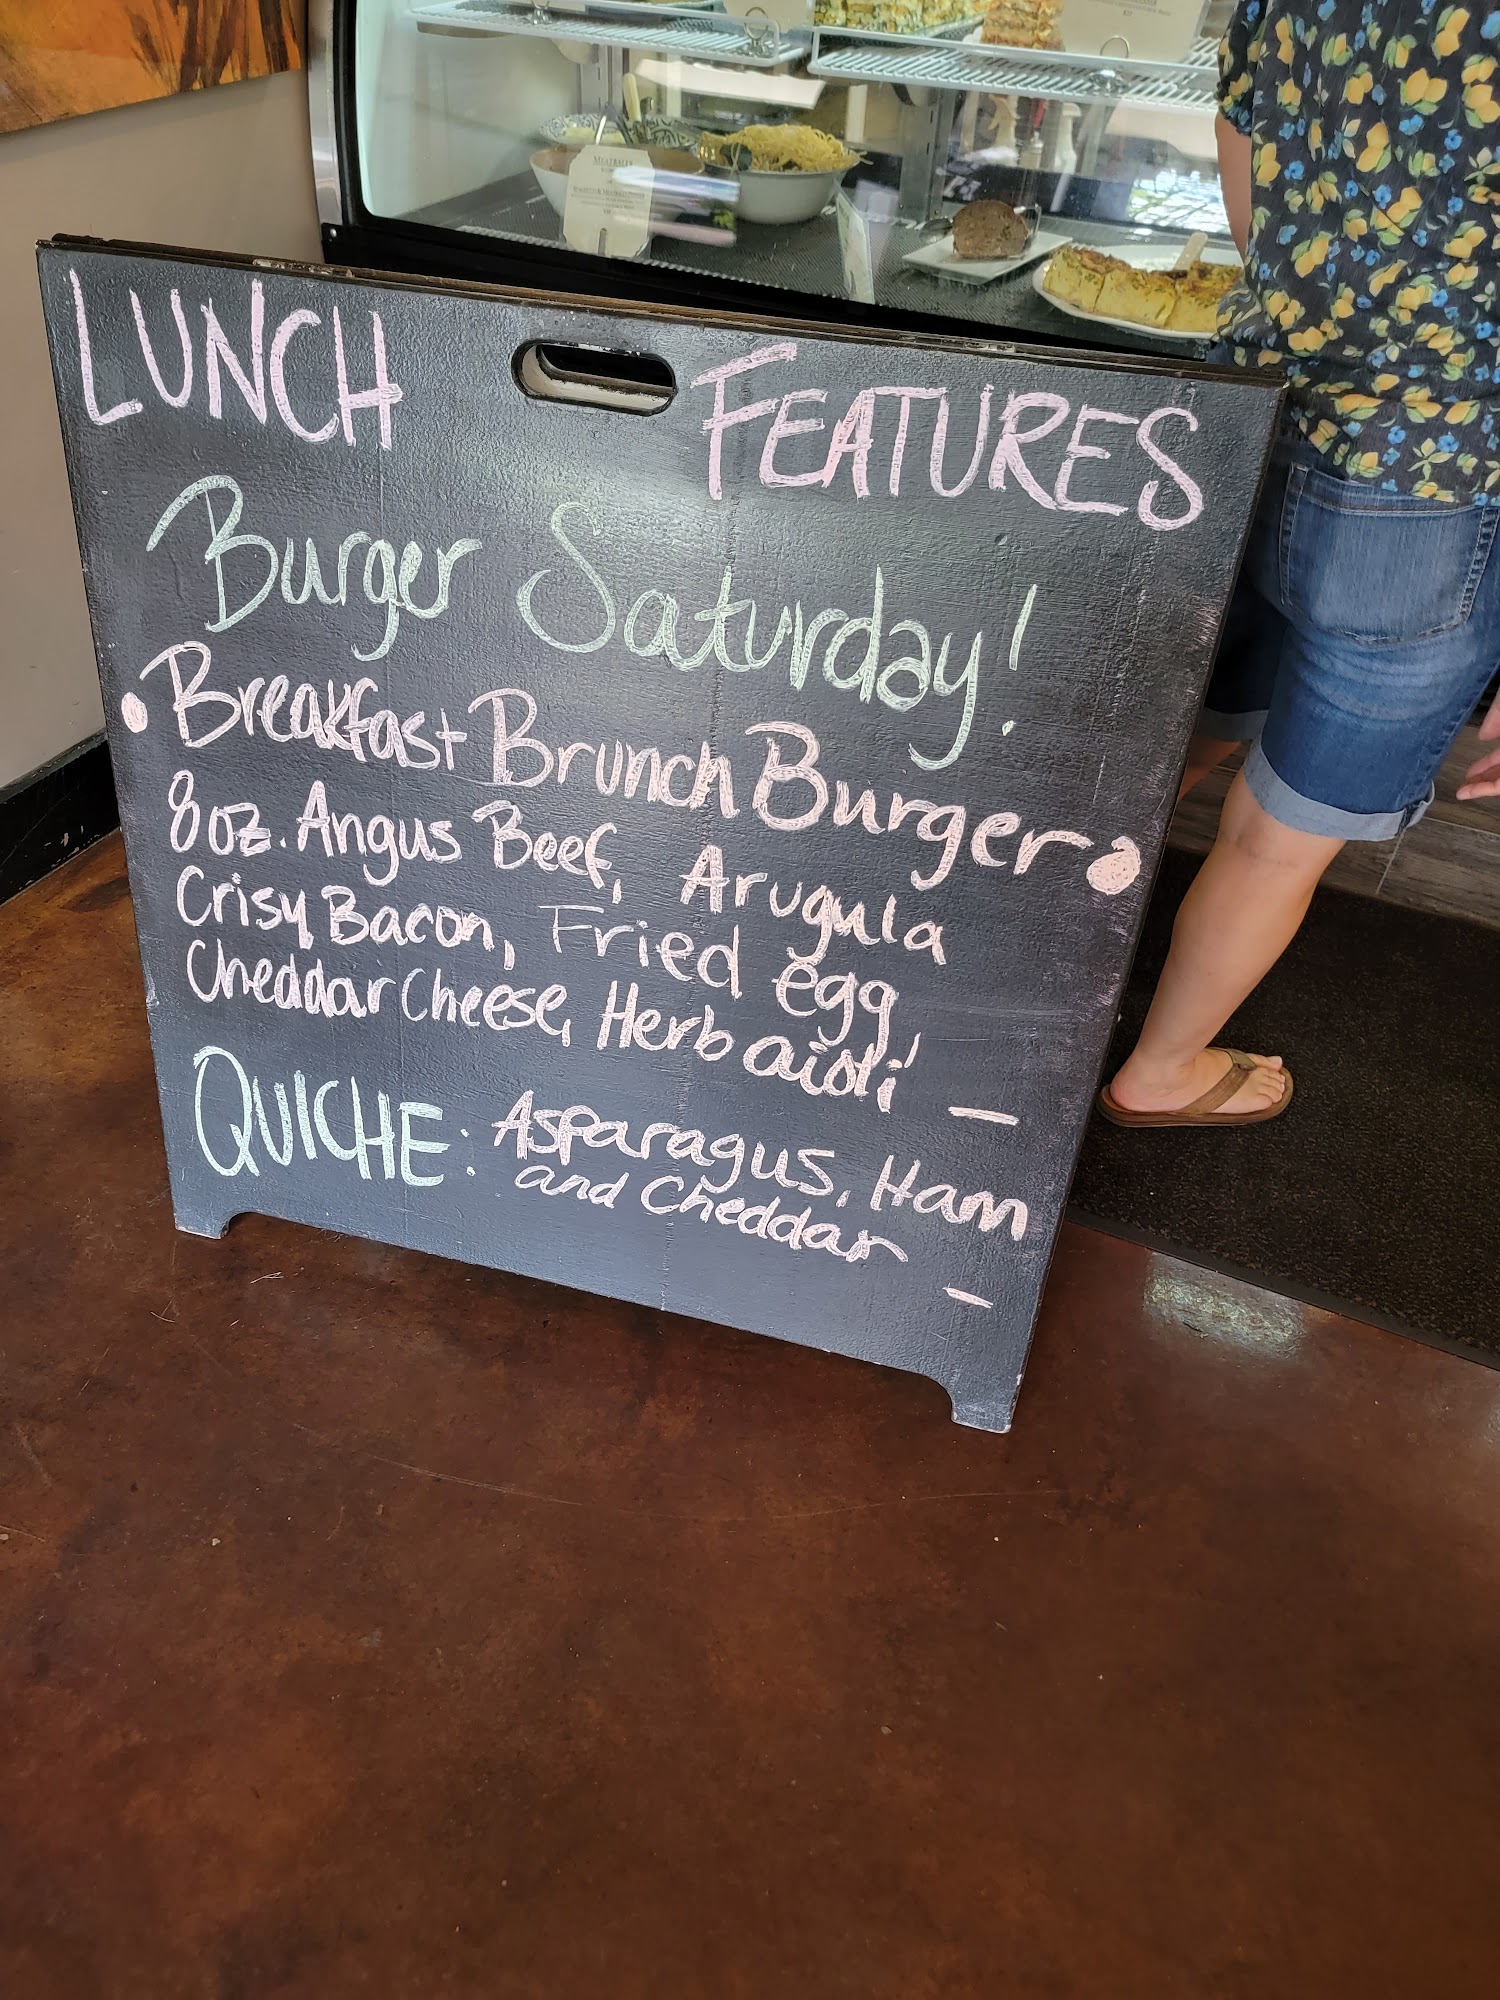 LUNCH FEATURES
Burger Saturday!
• Breakfast Brunch Burger •
8oz. Angus Beef, Arugula
Crisy Bacon, Fried egg,
Cheddar Cheese, Herb aioli –
QUICHE: Asparagus, Ham
and Cheddar –
MEATBALLS